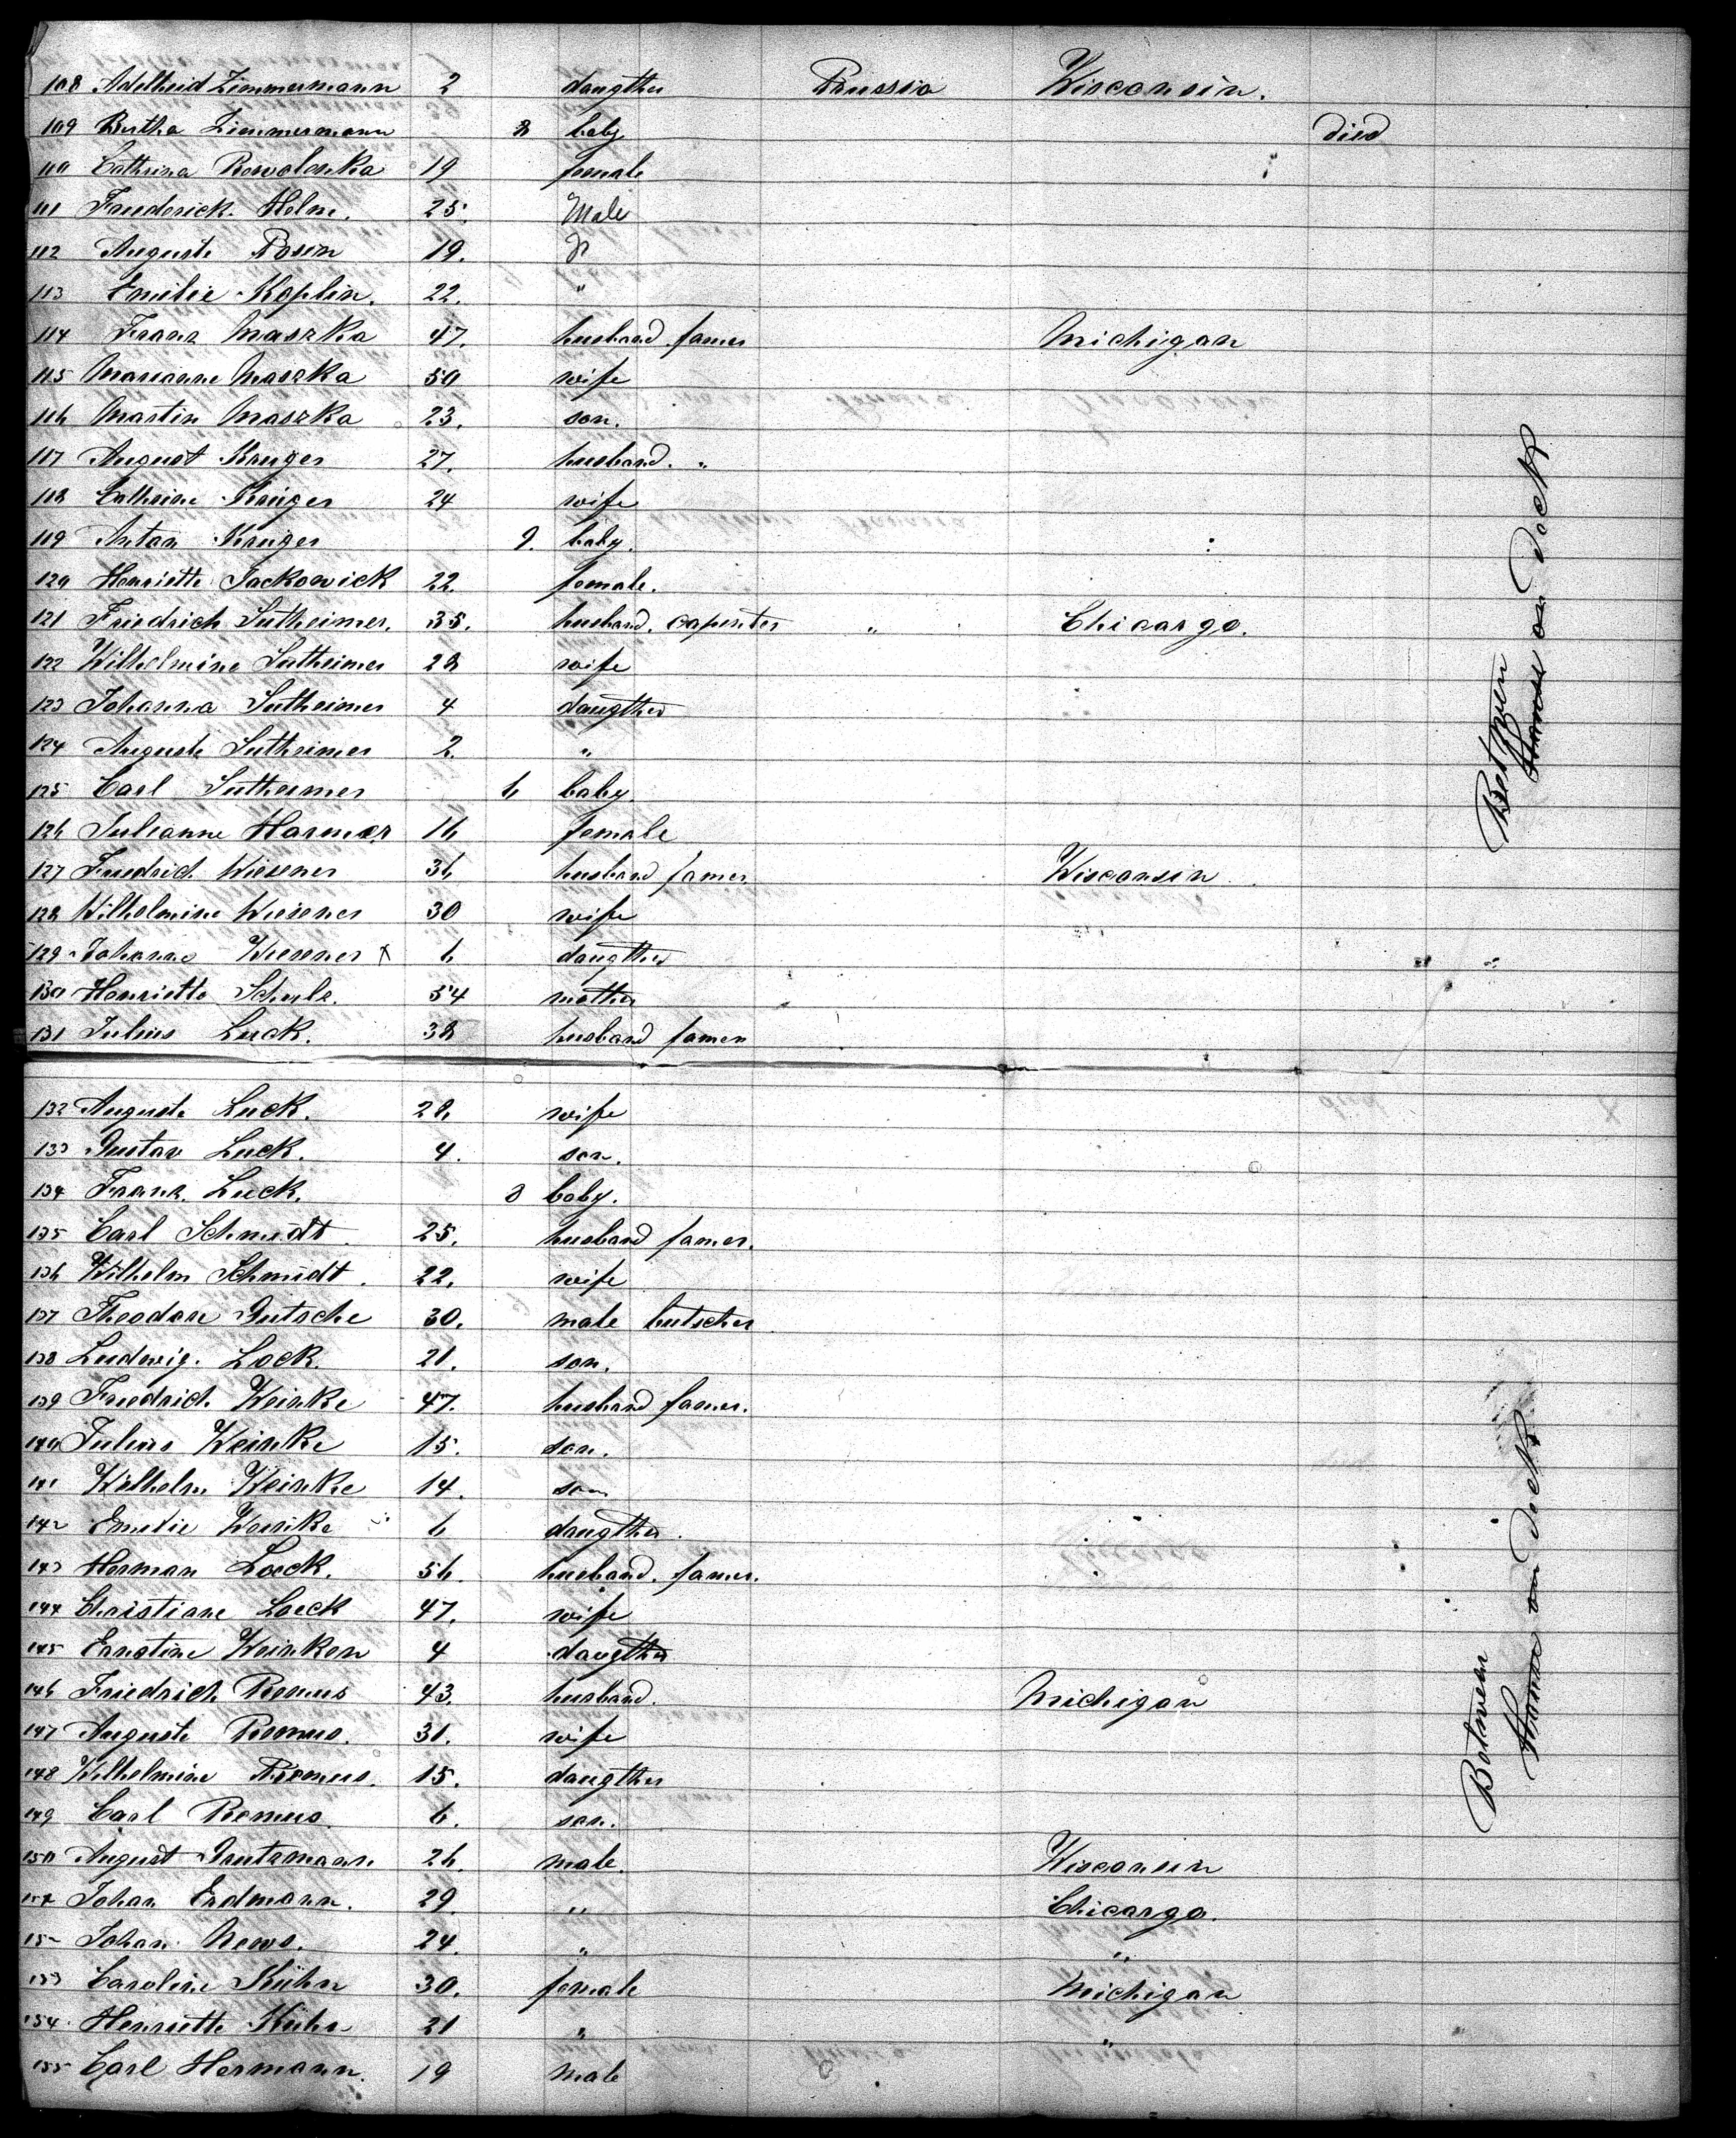 108 Adelheid Zimmermann 2 daugther Prussia Wisconsin.
109 Bertha Zimmermann 8 baby died
110 Cathrina 19 female
111 Frederick Helm. 25. Male
112 Auguste Rosin 19.
113 Emilie Koplin. 22. "
114 Franz Maszka 47. husband famer Michigan
115 Marianne Maszka 50 wife
116 Martin Maszka 23. son.
117 August Kruger 27. husband. "
118 Cathrine Kruger 24 wife
119 Anton Kruger 9. baby.
120 Henriette Jackowick 22. female.
121 Friedrich Sutheimer. 35. husband. capenter " Chicargo.
122 Wilhelmine Sutheimer 28 wife
123 Johanna Sutheimer 4 daugther
124 Auguste Sutheimer 2. "
125 Carl Sutheimer 6 baby.
126 Julianne Harmer 16 female
127 Friedrich Wiesener 36 husband famer Wisconsin
128 Wilhelmine Wiesener 30 wife
129 Johanne Wiesener x 6 daugther
130 Henriette Schulz. 54 mother
131 Julius Luck. 38 husband famer
Between House on Deck
132 Auguste Luck. 28. wife
133 Gustav Luck. 4. son.
134 Franz. Luck. 3 baby.
135 Carl Schmidt. 25. husband famer.
136 Wilhelm Schmidt. 22. wife
137 Theodore Gutsche 30. male butscher
138 Ludwig. Lock. 21. son.
139 Friedrich Weinke 47. husband famer.
140 Julius Weinke 15. son.
141 Wilhelm Weinke 14. son
142 Emilie Weinke 6 daugther.
143 Herman Loeck. 56. husband. famer.
144 Christiane Loeck 47. wife
145 Ernstine Weinken 4 daugther
146 Friedrich Remus 43. husband. Michigan
147 Auguste Remus. 31. wife
148 Wilhelmine Remus. 15. daugther
149 Carl Remus. 6. son.
150 August 26. male. Wisconsin
151 Johan Erdmann. 29. " Chicargo.
152 Johan News. 24. " "
153 Caroline Kühn 30. female Michigan
154 Henriette Kühn 21 " "
155 Carl Hermann. 19 male
Between House on Deck